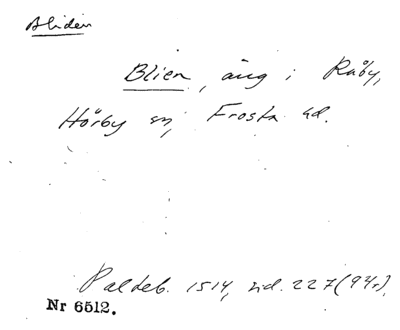 Bliden
Blien, äng i Råby,
Hörby sn, Frosta hd.
Palteb. 1514, sid. 227 (94r).
Nr 6512.